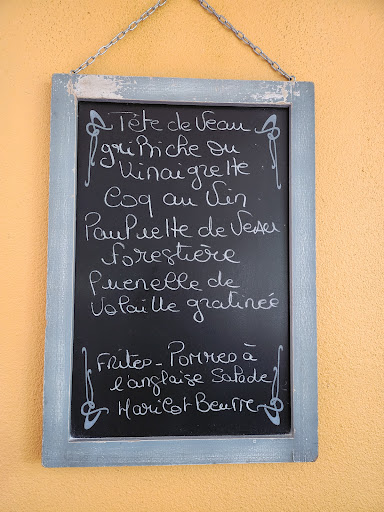 Tête de Veau
gribiche ou
Vinaigrette
Coq au Vin
Paupiette de Veau
forestière
Quenelle de
Volaille gratinée
Frites - Pommes à
l'anglaise Salade
Haricot Beurre